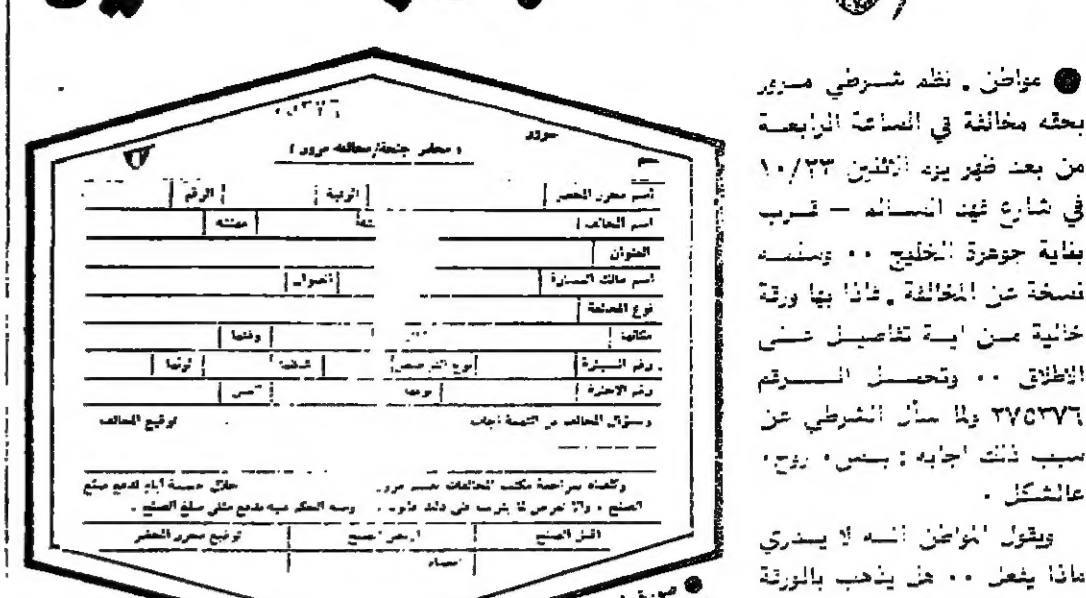 ● مواطن . نظم شرطي مرور
بحقه مخالفة في الساعة الرابعة
من بعد ظهر يوم الاثنين ١٠/٢٣
في شارع فهد السالم — قرب
بناية جوهرة الخليج .. وسلمه
نسخة عن المخالفة . فاذا بها ورقة
خالية من اية تفاصيل على
الاطلاق .. وتحمل الرقم
٢٧٥٣٧٦ ولما سأل الشرطي عن
سبب ذلك اجابه : بس . روح .
عالشكل .
ويقول المواطن انه لا يدري
ماذا يفعل .. هل يذهب بالورقة
مرور
« محضر جنحة/مخالفة مرور »
اسم محرر المحضر الرتبة الرقم
اسم المخالف مهنته
العنوان
اسم مالك السيارة العنوان
نوع
مكانها وقتها
رقم السيارة نوع الترخيص لونها
رقم الاجازة نوعها
وبسؤال المخالف عن التهمة اجاب توقيع المخالف
وكلفناه بمراجعة مكتب المخالفات بقسم مرور خلال خمسة أيام لدفع مبلغ
الصلح .
اقبل الصلح ارفض الصلح توقيع محرر المحضر
امضاء
● صورة